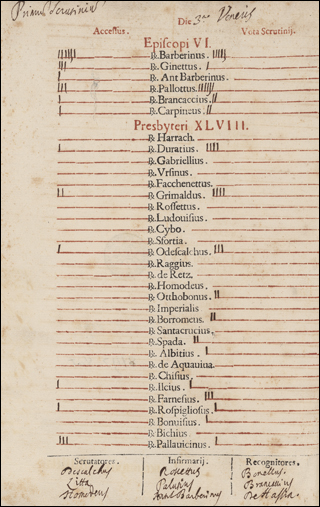 Primum Scrutiniu
Die 3ᵃ Veneris
Accessus. Vota Scrutinij.
Episcopi VI.
R. Barberinus.
R. Ginettus.
R. Ant Barberinus.
R. Pallottus.
R. Brancaccius
R. Carpineus
Presbyteri XLVIII.
R. Harrach.
R. Duratius.
R. Gabriellius.
R. Vrsinus.
R. Facchenettus.
R. Grimaldus.
R. Rossettus.
R. Ludouisius.
R. Cybo.
R. Sfortia.
R. Odescalchus.
R. Raggius.
R. de Retz.
R. Homodeus.
R. Otthobonus.
R. Imperialis
R. Borromeus.
R. Santacrucius.
R. Spada.
R. Albitius.
R. de Aquauiua.
R. Chisius.
R. Ilcius.
R. Farnesius.
R. Rospigliosus.
R. Bonuisius.
R. Bichius
R. Pallauicinus.
Scrutatores. Infirmarij. Recognitores.
Rossettus Bonellus.
Litta Palutius
Homodeus Ant Barberinus De Massa